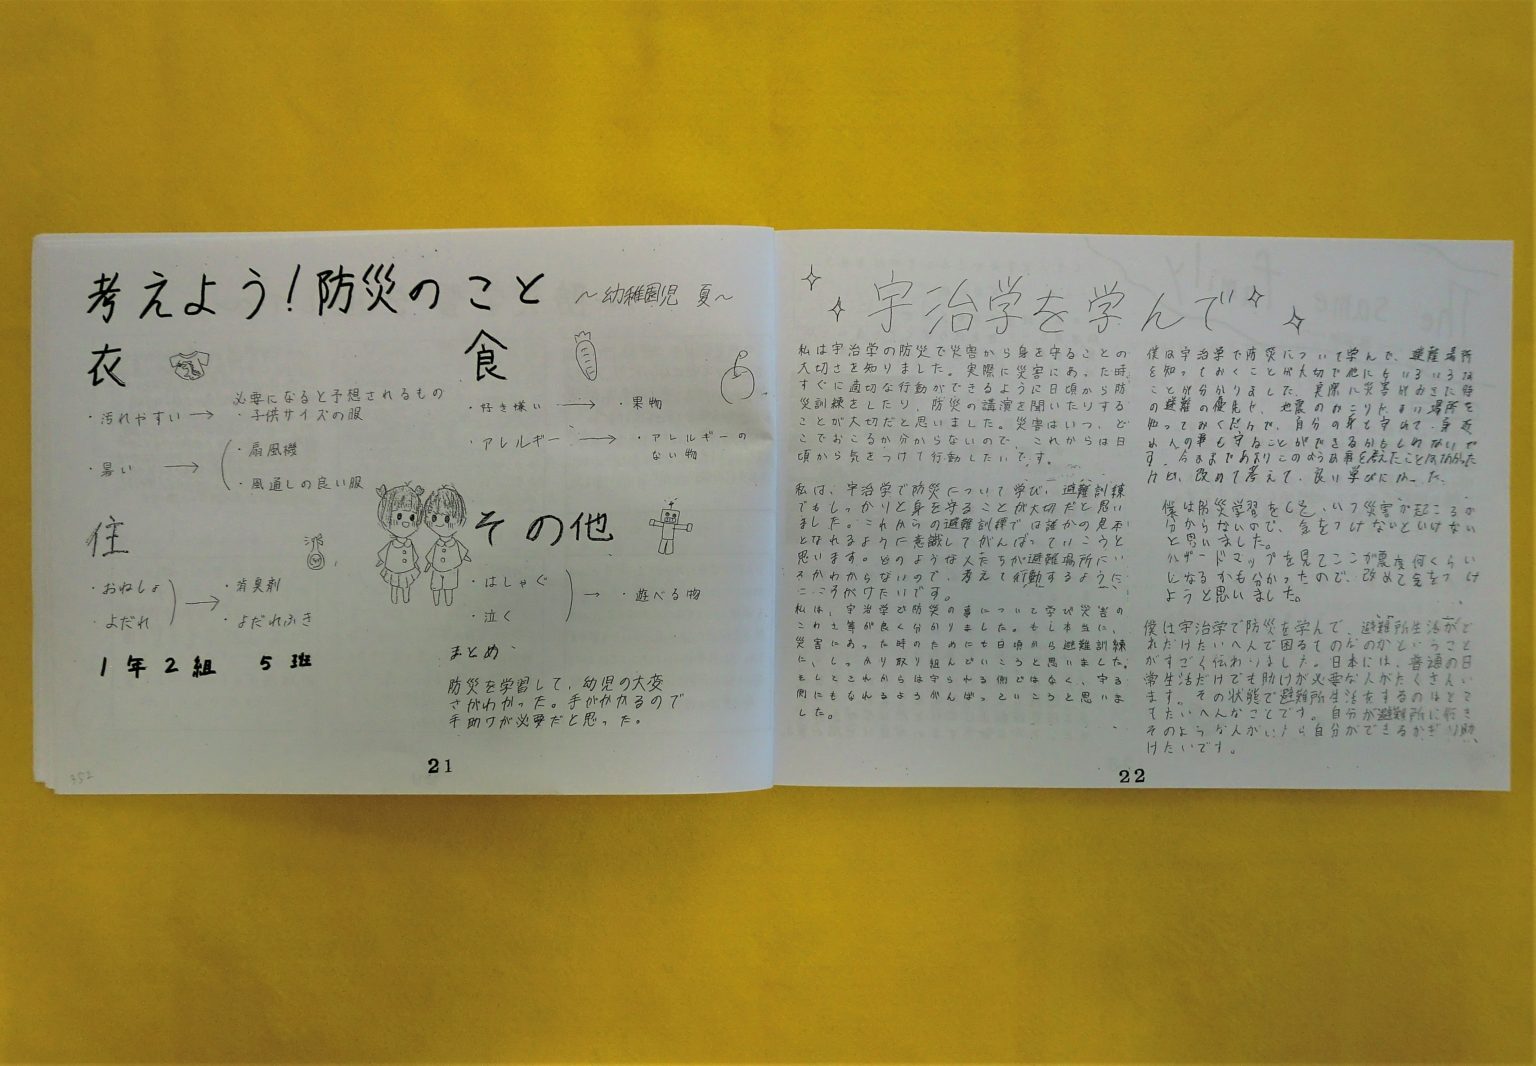 考えよう！防災のこと ～幼稚園児 夏～
衣
必要になると予想されるもの
・汚れやすい → ・子供サイズの服
・暑い → ・扇風機
・風通しの良い服
食
・好き嫌い → ・果物
・アレルギー → ・アレルギーの
ない物
住
・おねしょ → ・消臭剤
・よだれ ・よだれふき
その他
・はしゃぐ → ・遊べる物
・泣く
1年2組 5班
まとめ
防災を学習して、幼児の大変
さがわかった。手がかかるので
手助けが必要だと思った。
21
352
宇治学を学んで
私は宇治学の防災で災害から身を守ることの
大切さを知りました。実際に災害にあった時、
すぐに適切な行動ができるように日頃から防
災訓練をしたり、防災の講演を聞いたりする
ことが大切だと思いました。災害はいつ、ど
こでおこるか分からないので、これからは日
頃から気をつけて行動したいです。
私は、宇治学で防災について学び、避難訓練
でもしっかりと身を守ることが大切だと思い
ました。これからの避難訓練では誰かの見本
となれるように意識してがんばっていこうと
思います。どのような人たちが避難場所にい
るかわからないので、考えて行動するように
こころがけたいです。
私は、宇治学で防災の事について学び災害の
こわさ等が良く分かりました。もし本当に、
災害にあった時のためにも日頃から避難訓練
に、しっかり取り組んでいこうと思いました。
そしてこれからは守られる側ではなく、守る
側にもなれるようがんばっていこうと思いま
した。
僕は宇治学で防災について学んで、避難場所
を知っておくことが大切で他にもいろいろな
ことが分かりました。実際に災害がおきた時
の避難の仕方や、地震のおこりやすい場所を
知っておくだけで、自分の身を守れて、身近
な人の事も守ることができるかもしれないで
す。今まであまりこのような事を考えたことはなかった
けど、改めて考えて、良い学びになった。
僕は防災学習をして、いつ災害が起こるか
分からないので、気をつけないといけない
と思いました。
ハザードマップを見てここが震度何くらい
になるかも分かったので、改めて気をつけ
ようと思いました。
僕は宇治学で防災を学んで、避難所生活がど
れだけたいへんで困るものなのかということ
がすごく伝わりました。日本には、普通の日
常生活だけでも助けが必要な人がたくさんい
ます。その状態で避難所生活をするのはとて
もたいへんなことです。自分が避難所に行き
そのような人がいたら自分ができるかぎり助
けたいです。
22